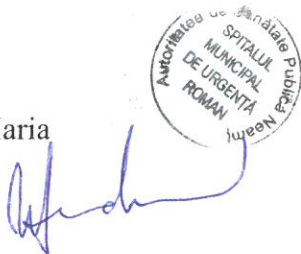 Autoritatea de Sănătate Publică Neamț
SPITALUL
MUNICIPAL
DE URGENȚĂ
ROMAN